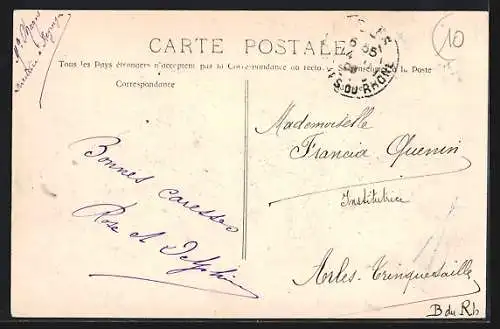 CARTE POSTALE
10
Tous les Pays étrangers n'acceptent pas la Correspondance au recto
la Poste
Correspondance
DU-RHONE
Mademoiselle
Francia Quenin
Institutrice
Arles-Trinquetaille
B du Rh
Bonnes caresses
Rose et Delphine